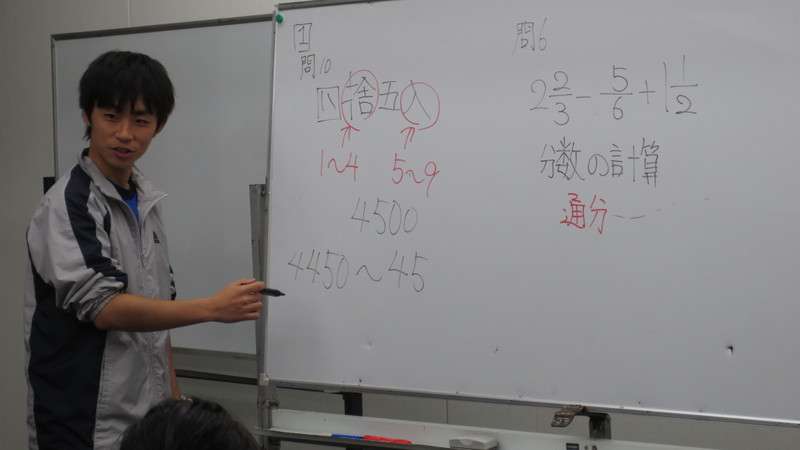 1
問10
四捨五入
1～4 5～9
4500
4450～45
問6
2 2/3 - 5/6 + 1 1/2
分数の計算
通分